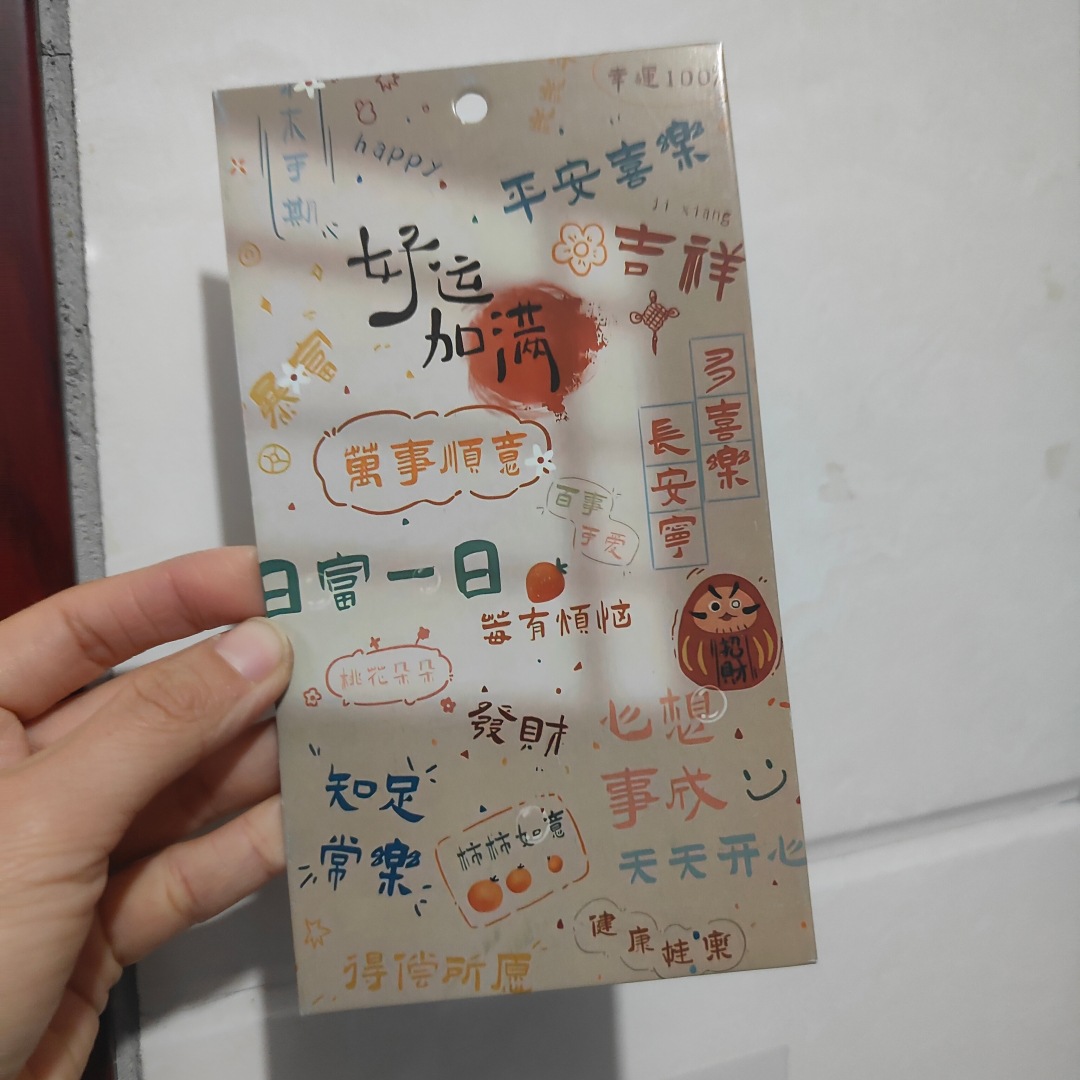 幸運100
木手期
happy
平安喜樂
ji xiang
吉祥
好运
加满
暴富
多喜樂
長安寧
萬事順意
百事
可爱
日富一日
莓有煩恼
招財
桃花朵朵
發財
心想
事成
知足
常樂
柿柿如意
天天开心
健康快樂
得偿所愿